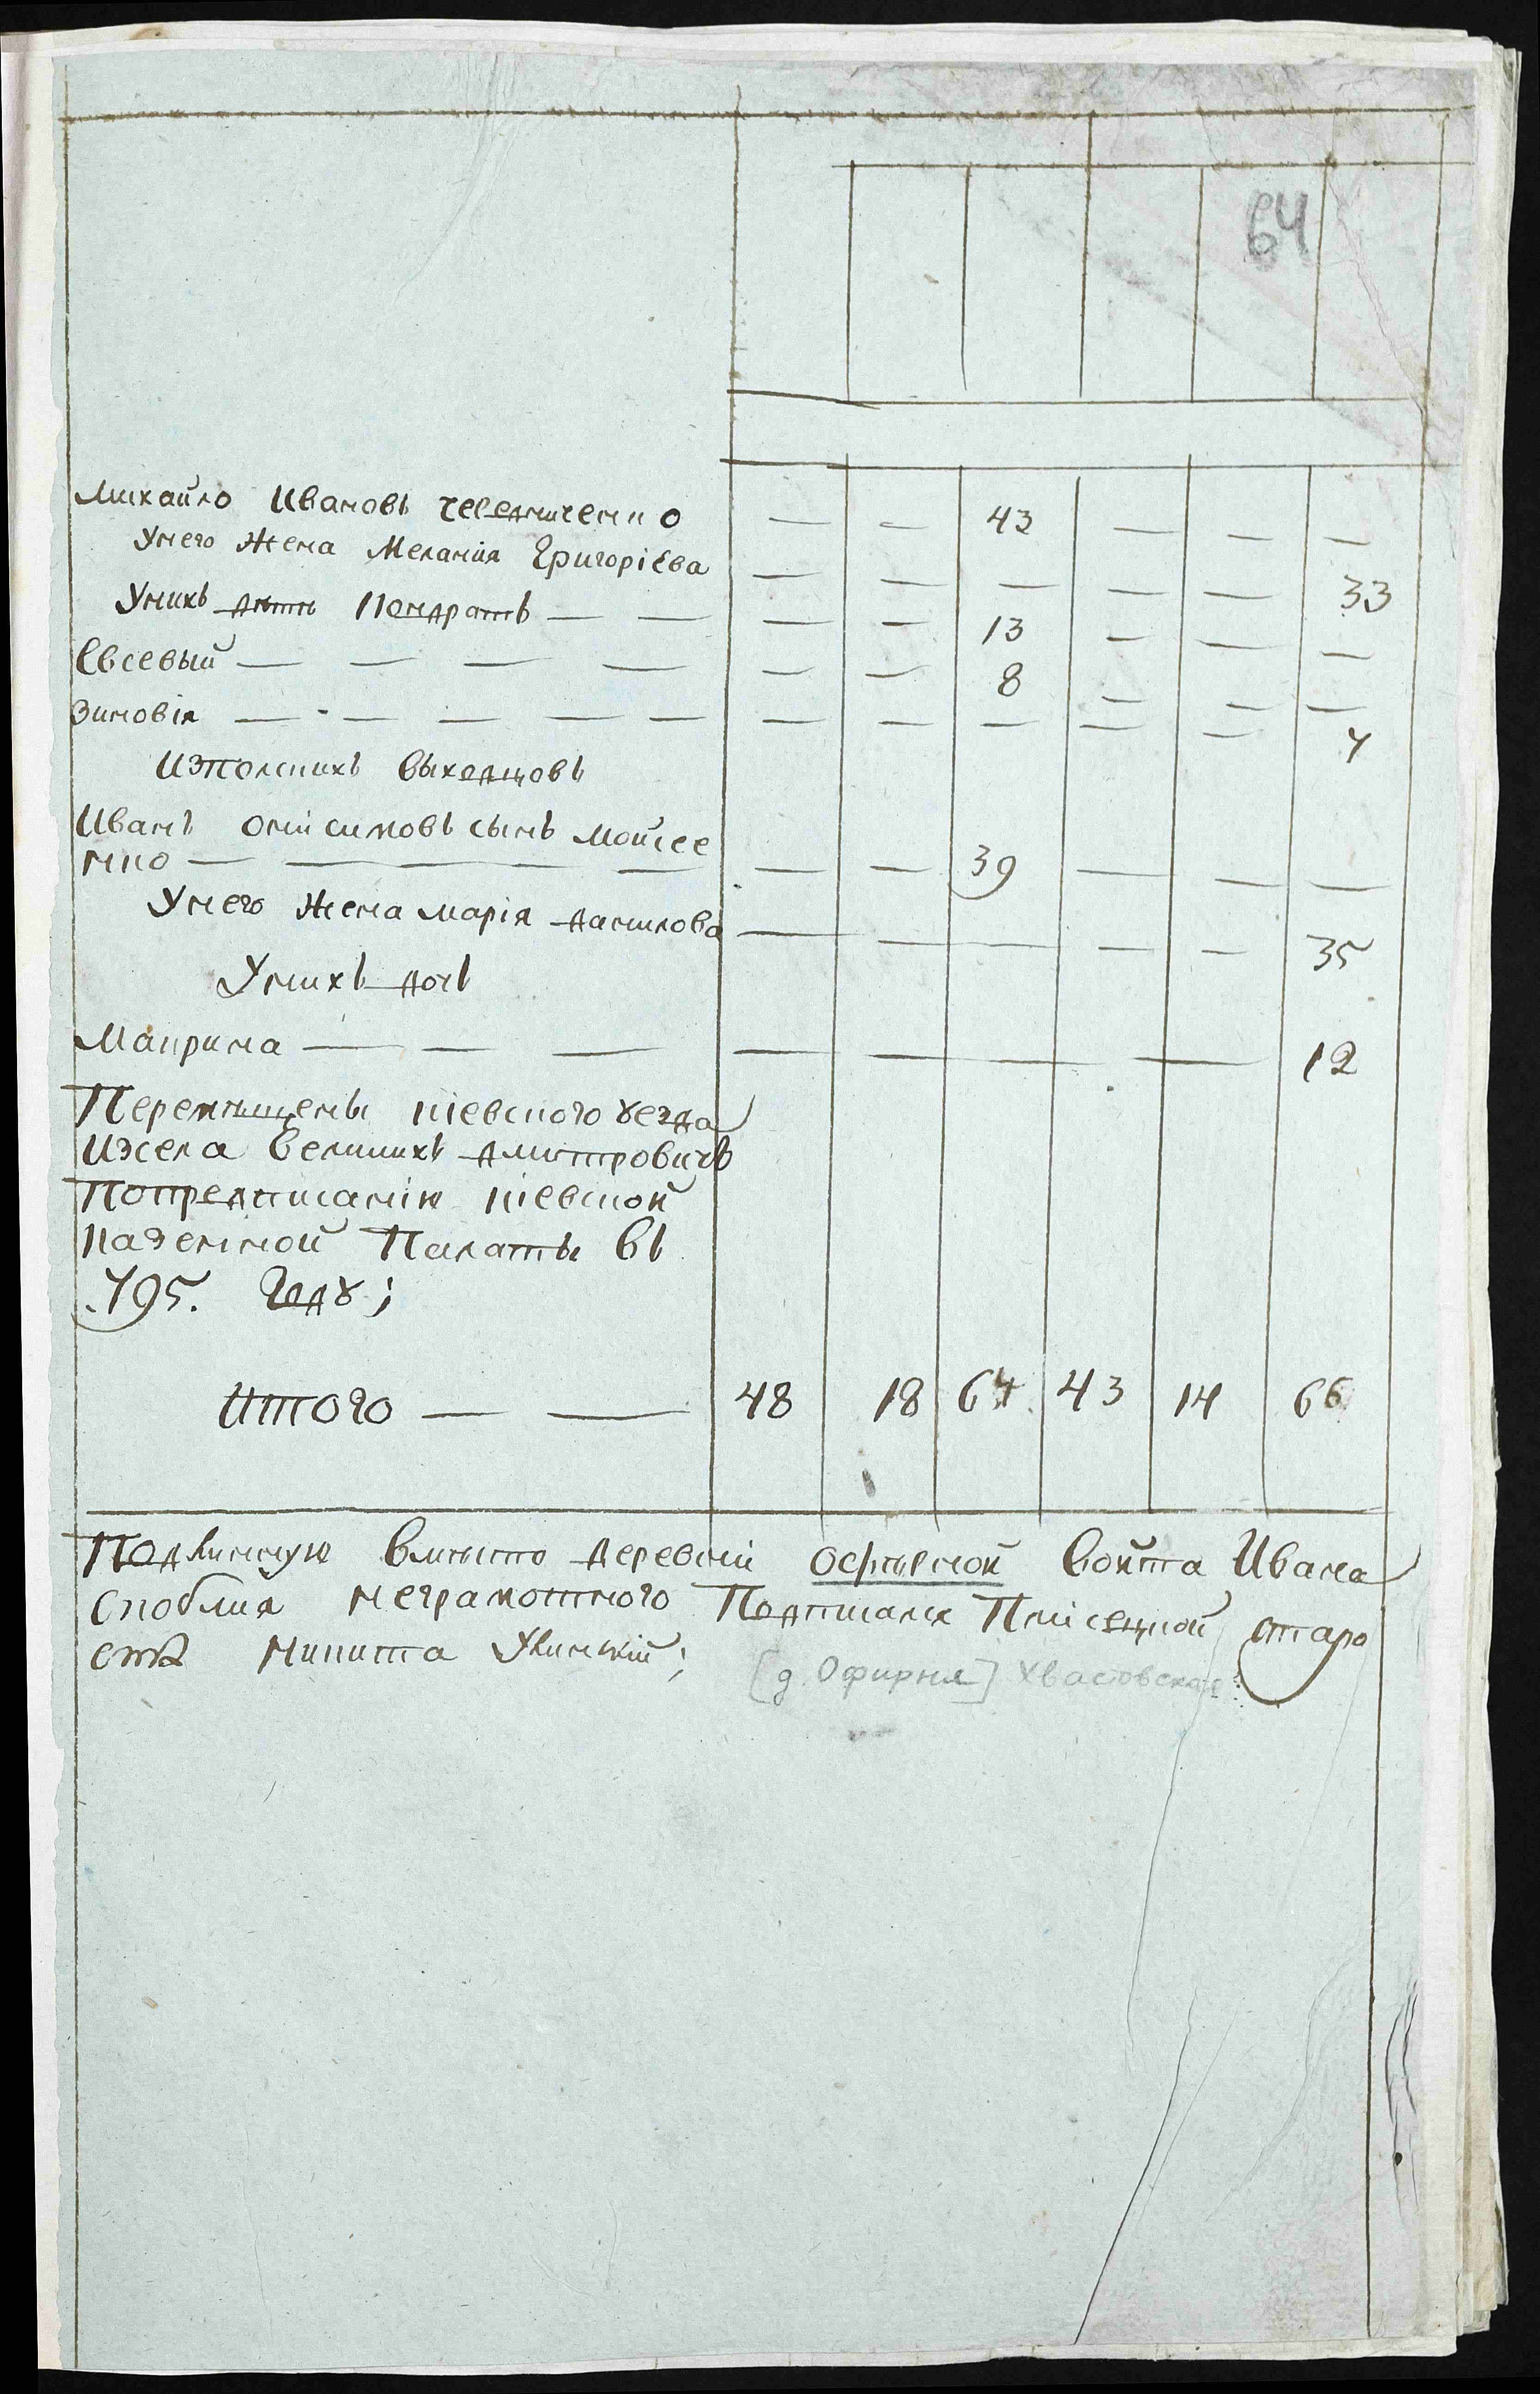 64
Михайло Ивановъ чередниченко — — 43 — — —
Унего жена Мелания Григоріева — — — — — 33
Унихъ дѣти Кондратъ — — — — 13 — — —
Евсевый — — — — — — 8 — — —
Зиновія — — — — — — — — — — 7
Изполскихъ выходцовъ
Иванъ онисимовъ сынъ Мойсее
нко — — — — — 39 — — —
Унего жена марія данилова — — — — — 35
Унихъ дочъ
Макрина — — — — — — — 12
Перемѣщены кіевского уезда
Изсела великихъ дмитровичъ
Попредписанію кіевской
казенной Палаты въ
.795. Году;
Итого — — 48 18 64 43 14 66
Подлинную вмѣсто деревни офѣрной войта Ивана
скоблия неграмотного Подписался Плисецкой старо
ста Никита Улинскій;
[д. Офирня] Хвастовская